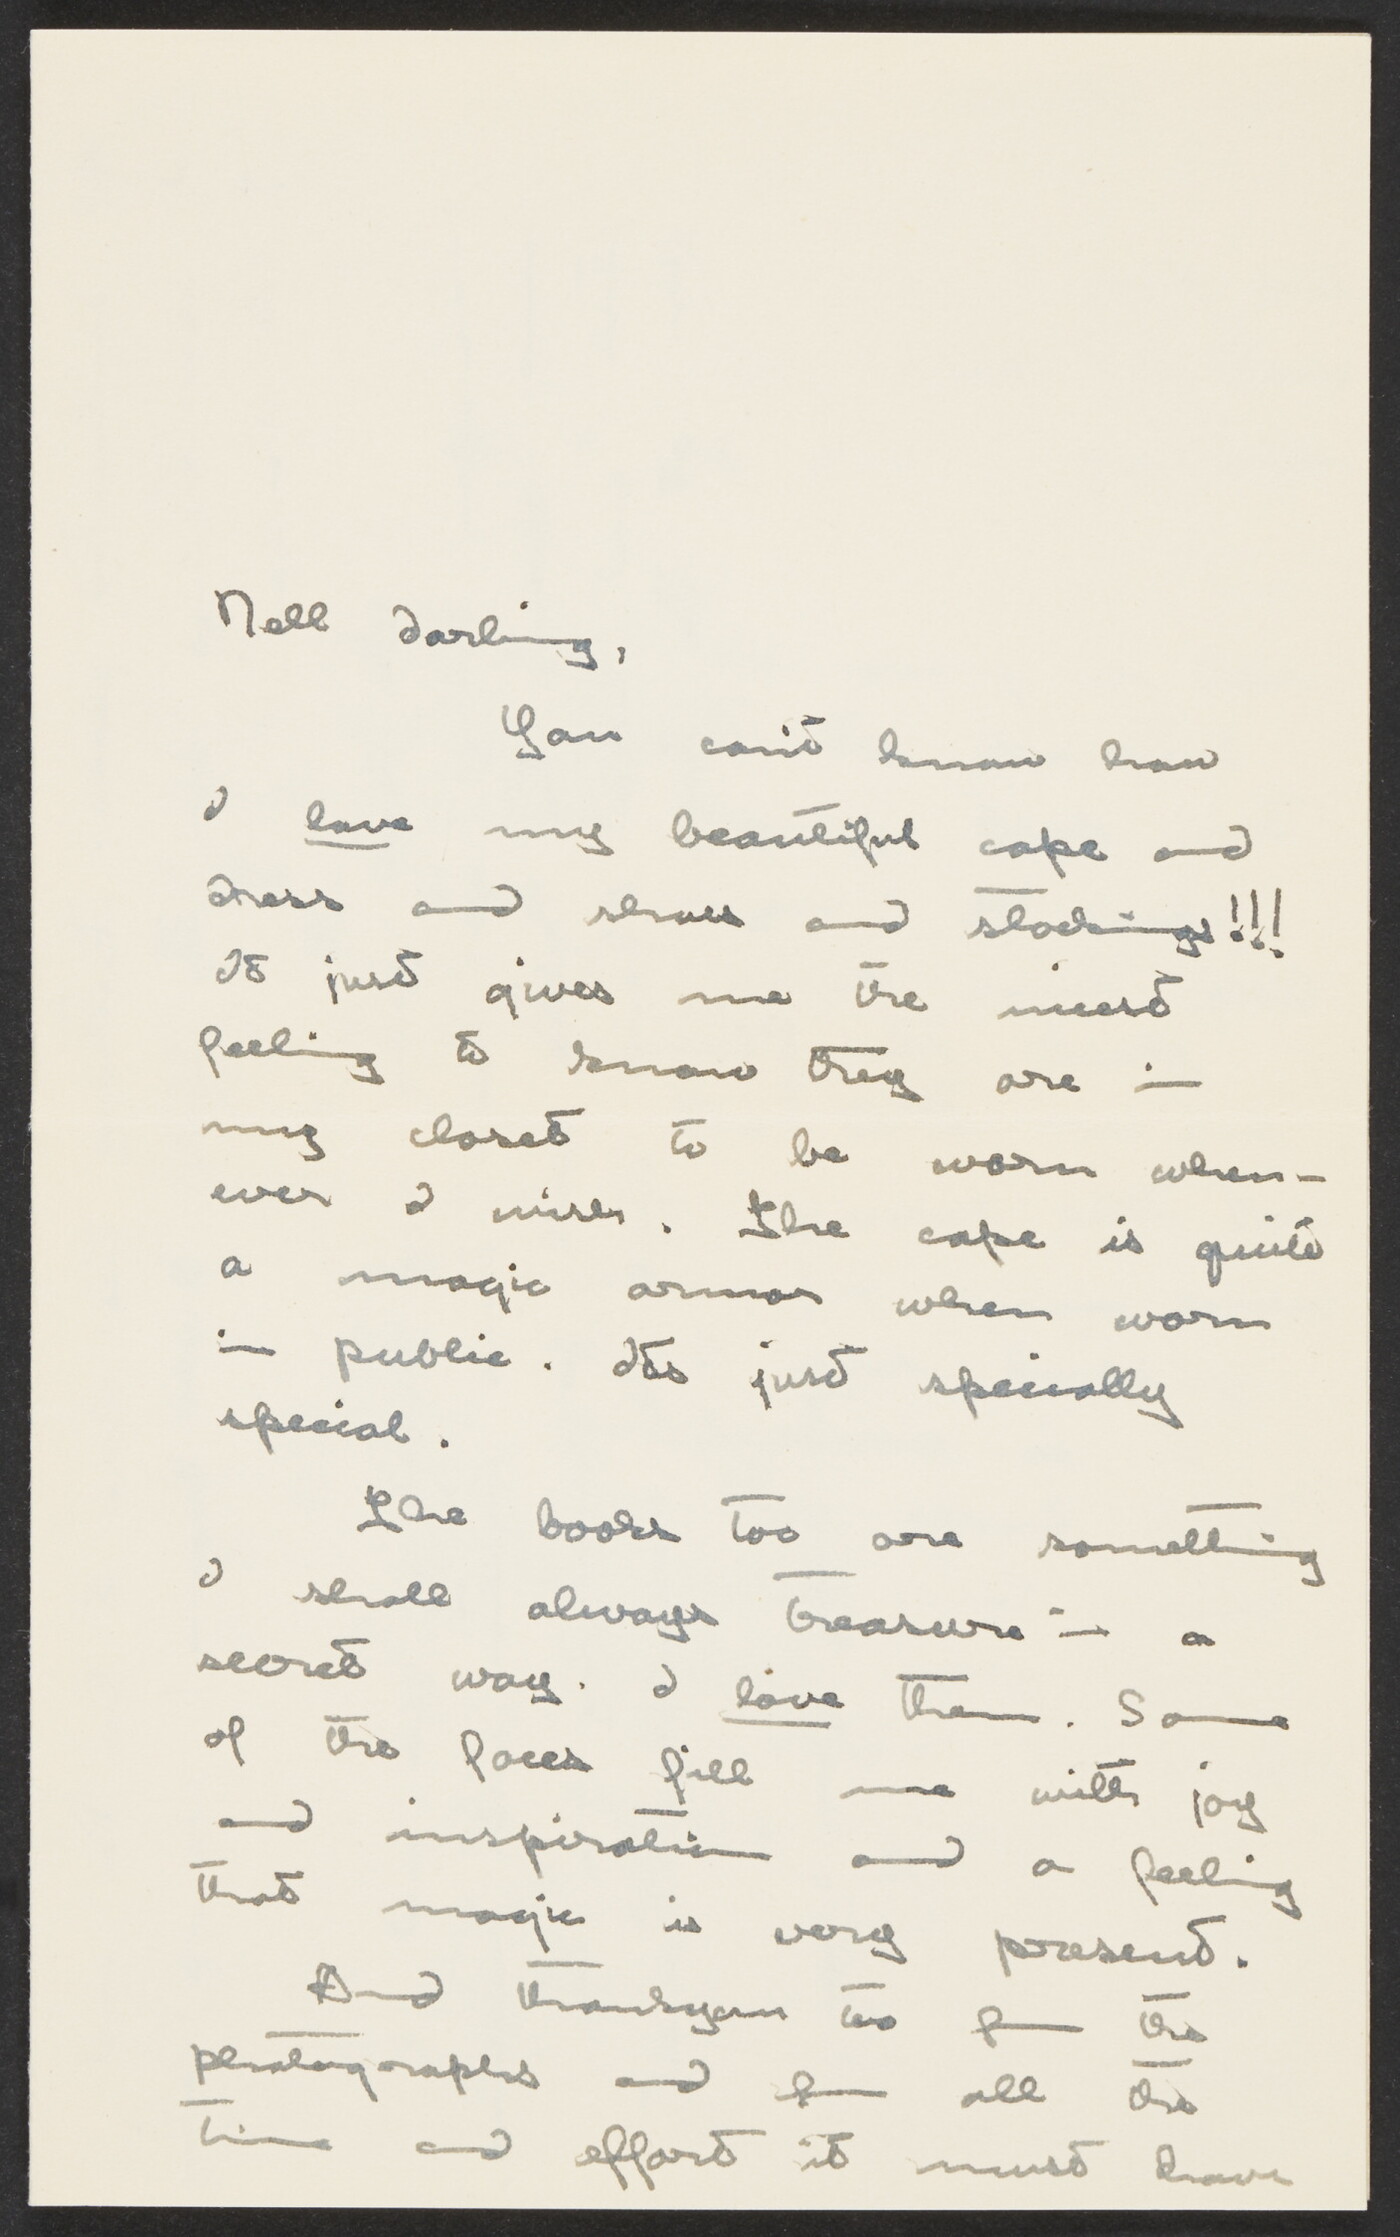 Nell darling,
You can't know how
I love my beautiful cape and
dress and shoes and stockings!!!
It just gives me the nicest
feeling to know they are in
my closet to be worn when-
ever I wish. The cape is quite
a magic armor when worn
in public. Its just specially
special.
The books too are something
I shall always treasure in a
secret way. I love them. Some
of the faces fill me with joy
and inspiration and a feeling
that magic is very present.
And thankyou too for the
photographs and for all the
time and effort it must have